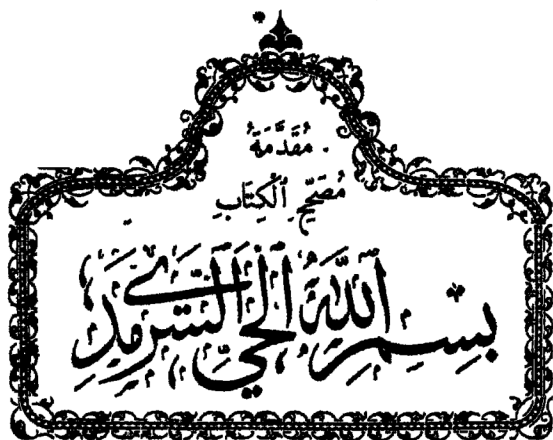 مُقَدَّمَةُ
مُصَحِّحِ الْكِتَابِ
بِسْمِ اللّٰهِ الْحَيِّ السَّرْمَدِي